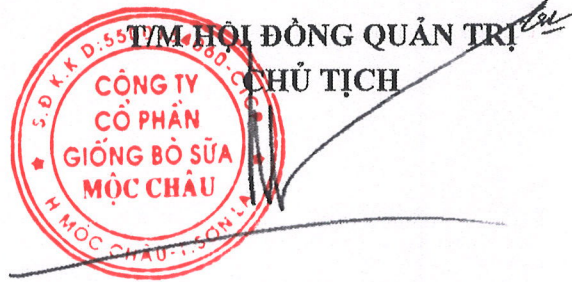 T/M HỘI ĐỒNG QUẢN TRỊ
CHỦ TỊCH
CÔNG TY
CỔ PHẦN
GIỐNG BÒ SỮA
MỘC CHÂU
H MỘC CHÂU-T.SƠN LA